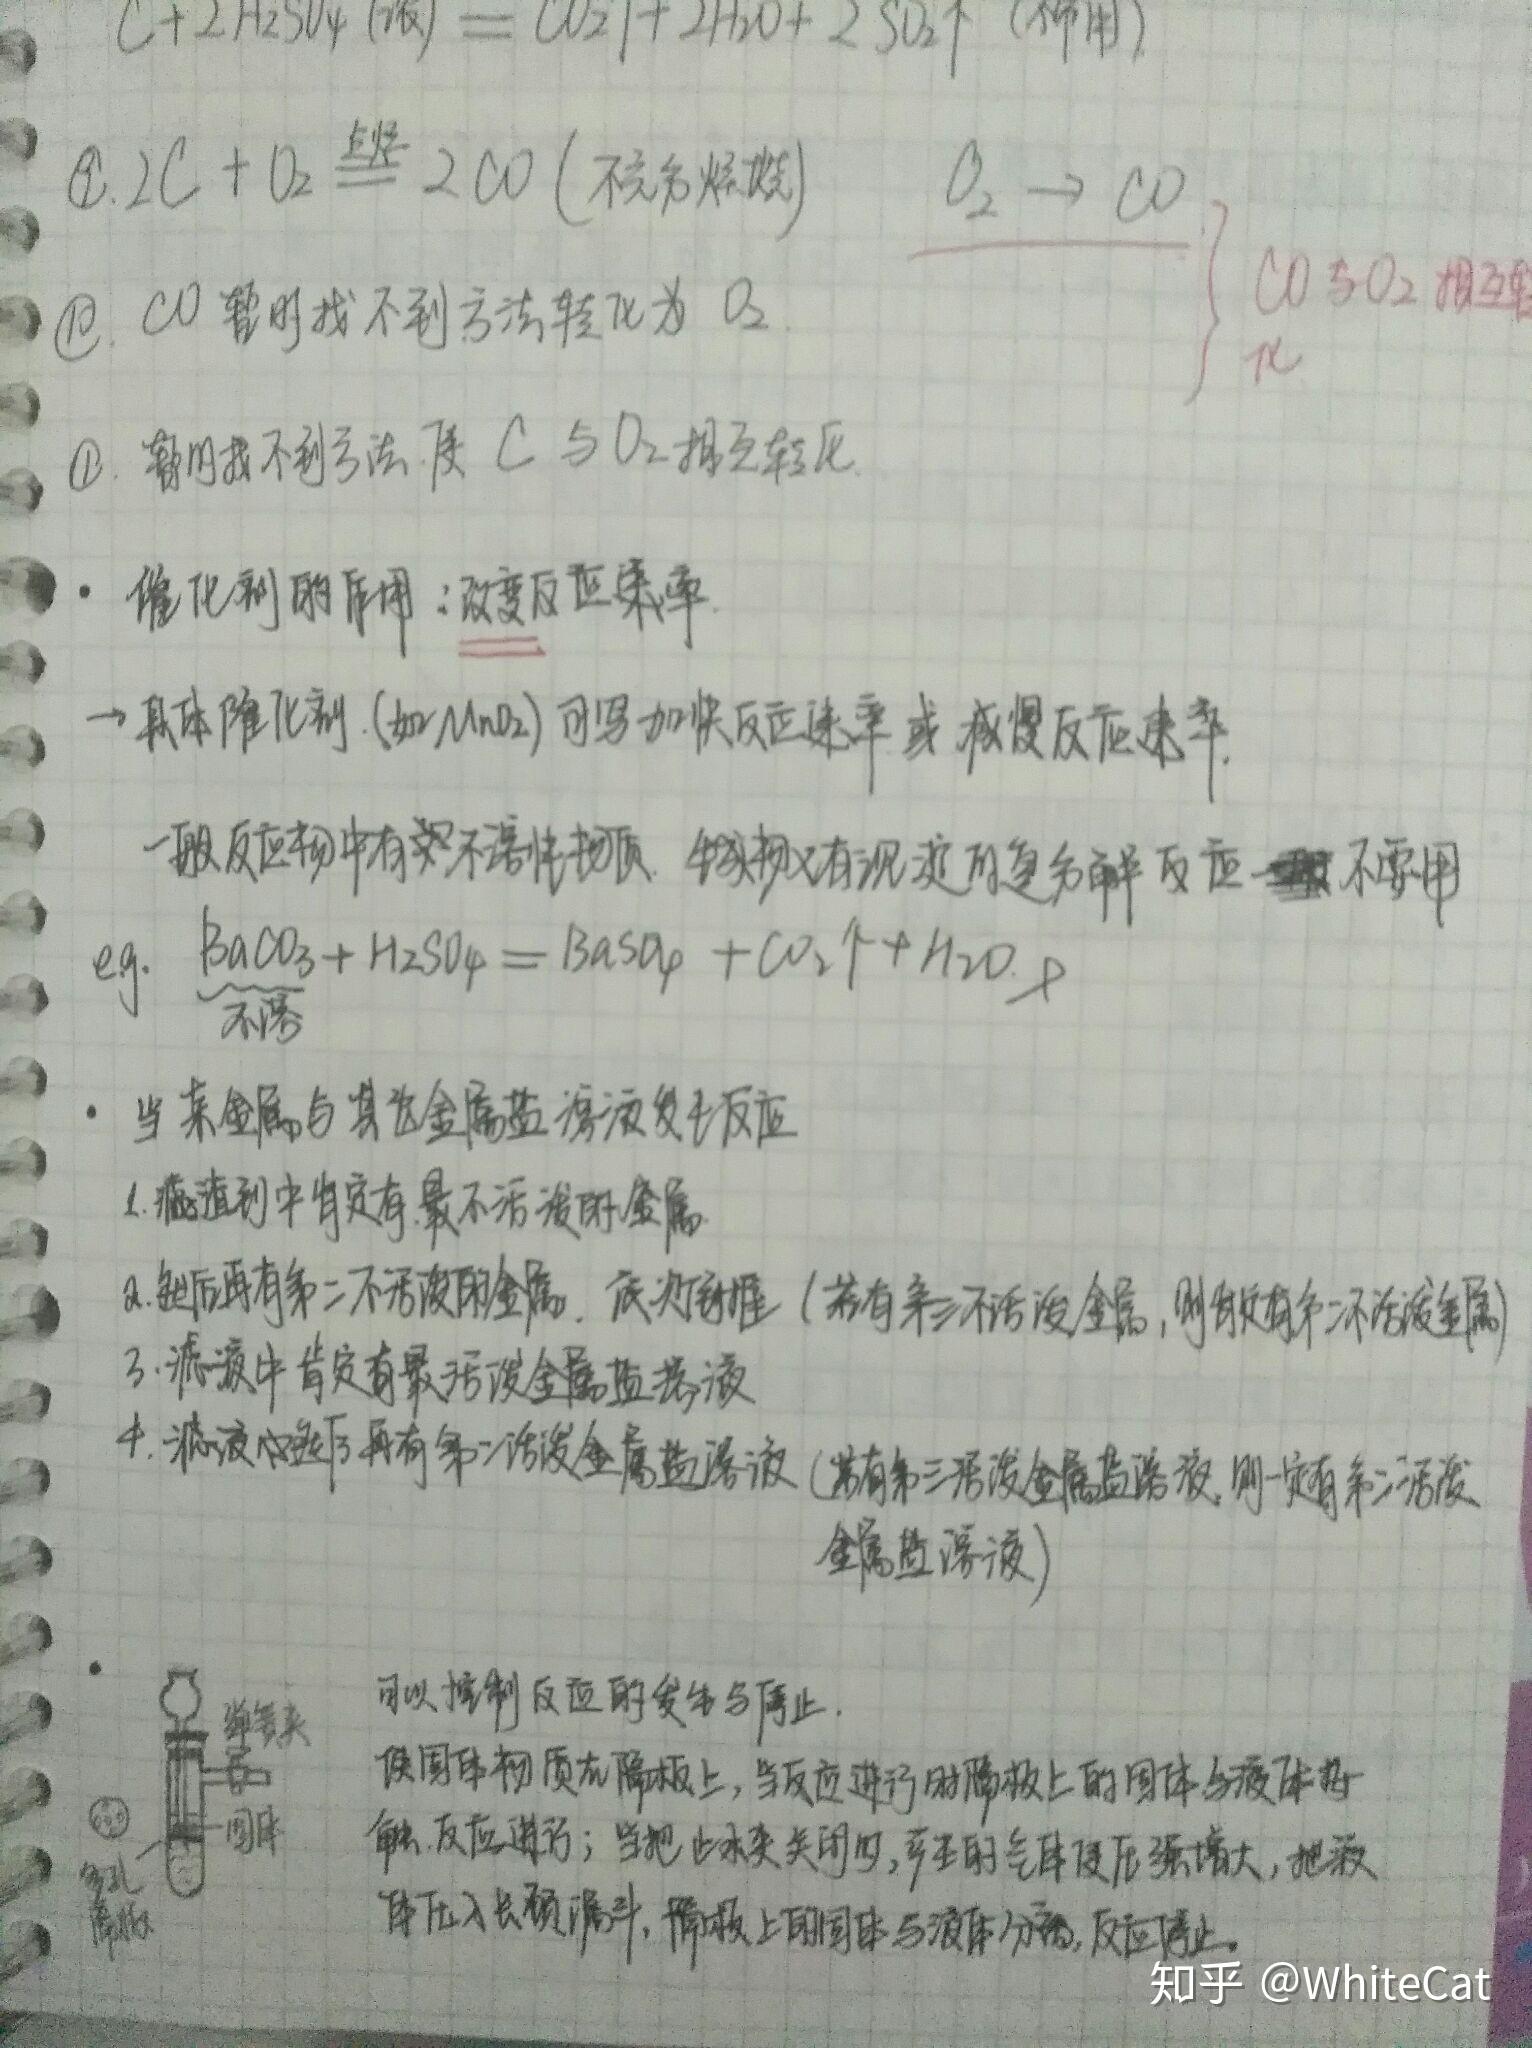 C+2H₂SO₄(浓) = CO₂↑+2H₂O+2SO₂↑
①. 2C + O₂ 点燃 2CO (不充分燃烧) O₂ → CO
②. CO 暂时找不到方法转化为 O₂.
CO与O₂相互转
化
①. 暂时找不到方法使 C 与O₂相互转化.
· 催化剂的作用：改变反应速率.
→具体催化剂.(如MnO₂)可写加快反应速率或减慢反应速率.
一般反应物中有不溶性物质. 生成物又有沉淀的复分解反应 不要用
eg. BaCO₃+H₂SO₄=BaSO₄+CO₂↑+H₂O. ×
不溶
· 当某金属与其它金属盐溶液发生反应
1. 滤渣中肯定有最不活泼的金属.
2. 然后再有第二不活泼的金属. 依次后推 (若有第三不活泼金属,则肯定有第二不活泼金属)
3. 滤液中肯定有最活泼金属盐溶液
4. 滤液中然后再有第二活泼金属盐溶液 (若有第三活泼金属盐溶液,则一定有第二活泼
金属盐溶液)
· 可以控制反应的发生与停止.
弹簧夹
使固体物质在隔板上,当反应进行时隔板上的固体与液体接
固体
触.反应进行；当把止水夹关闭时,产生的气体使压强增大,把液
多孔
隔板
体压入长颈漏斗,隔板上的固体与液体分离,反应停止。
知乎 @WhiteCat